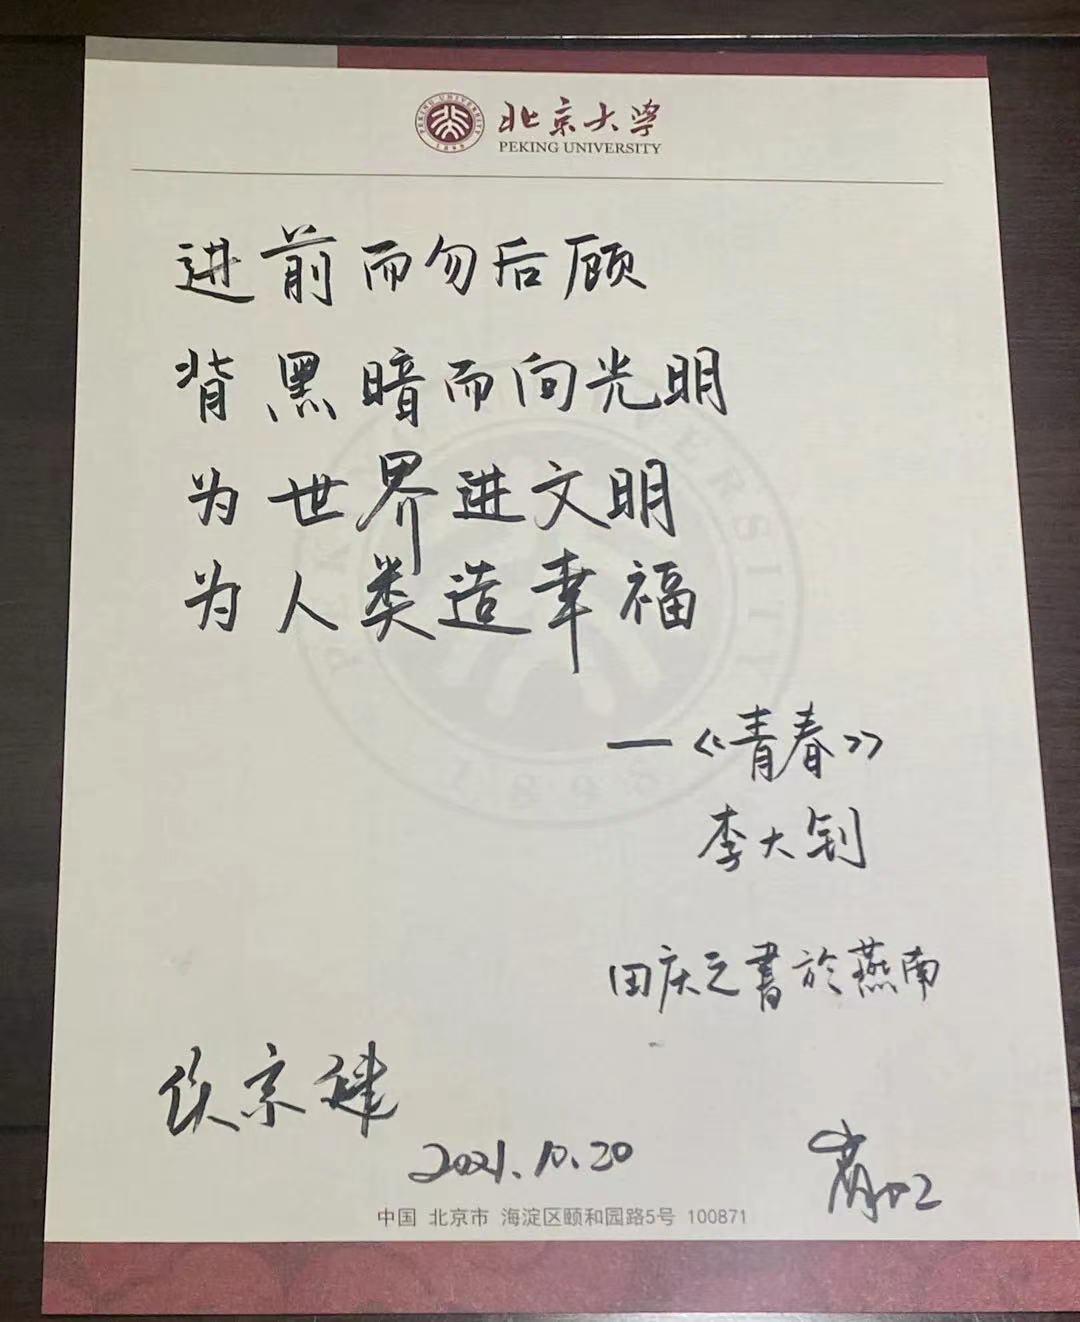 北京大学
PEKING UNIVERSITY
进前而勿后顾
背黑暗而向光明
为世界进文明
为人类造幸福
—《青春》
李大钊
田庆之書於燕南
侯宗健
2021.10.20
中国 北京市 海淀区颐和园路5号 100871